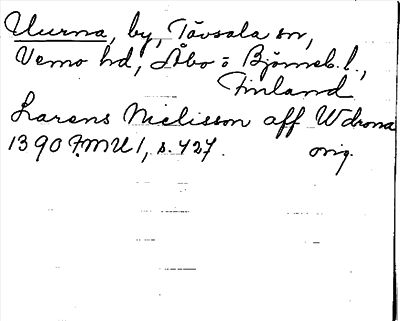 Uurna, by, Tövsala sn,
Vemo hd, Åbo o Björneb. l.,
Finland
Larens Nielisson aff Wdrona
1390 FMU 1, s. 427. orig.